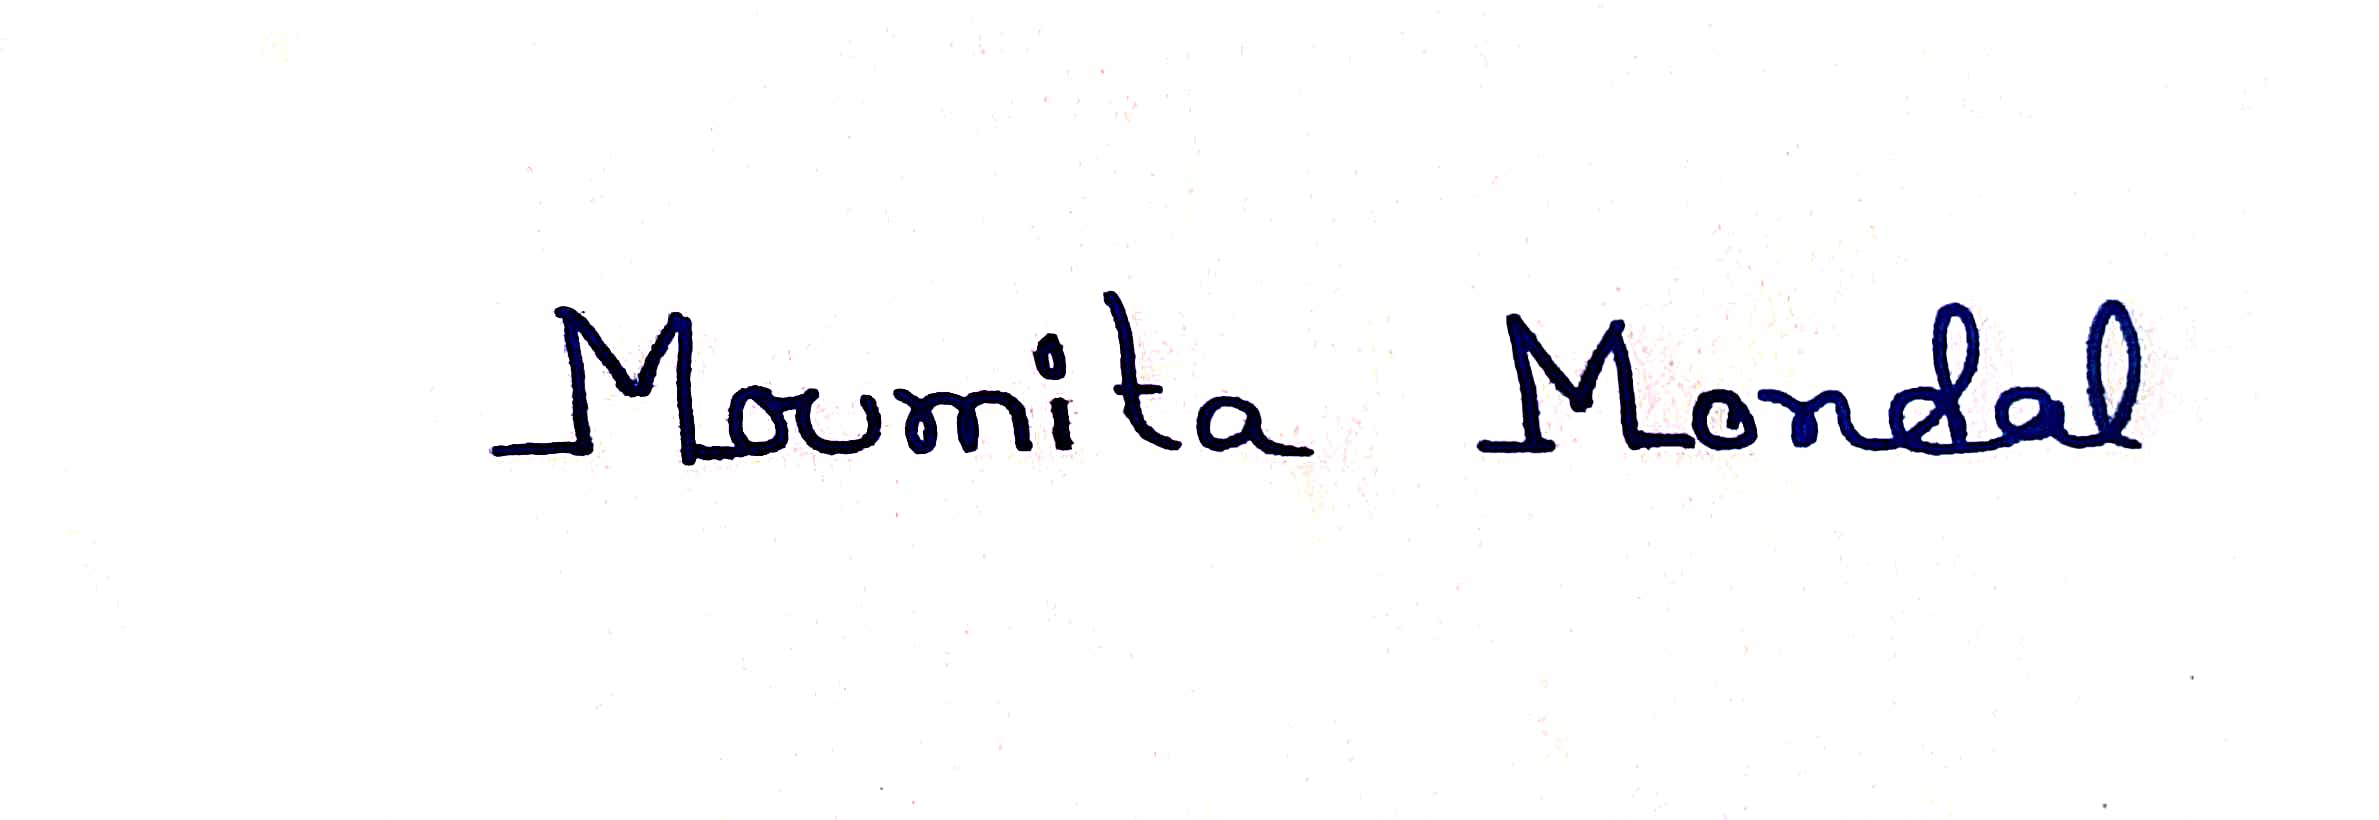 Moumita Mondal